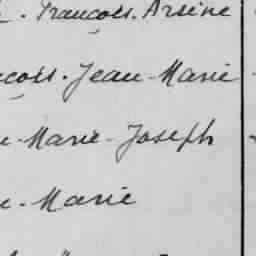 . François. Arsène
çois. Jean-Marie
- Marie-Joseph
- Marie